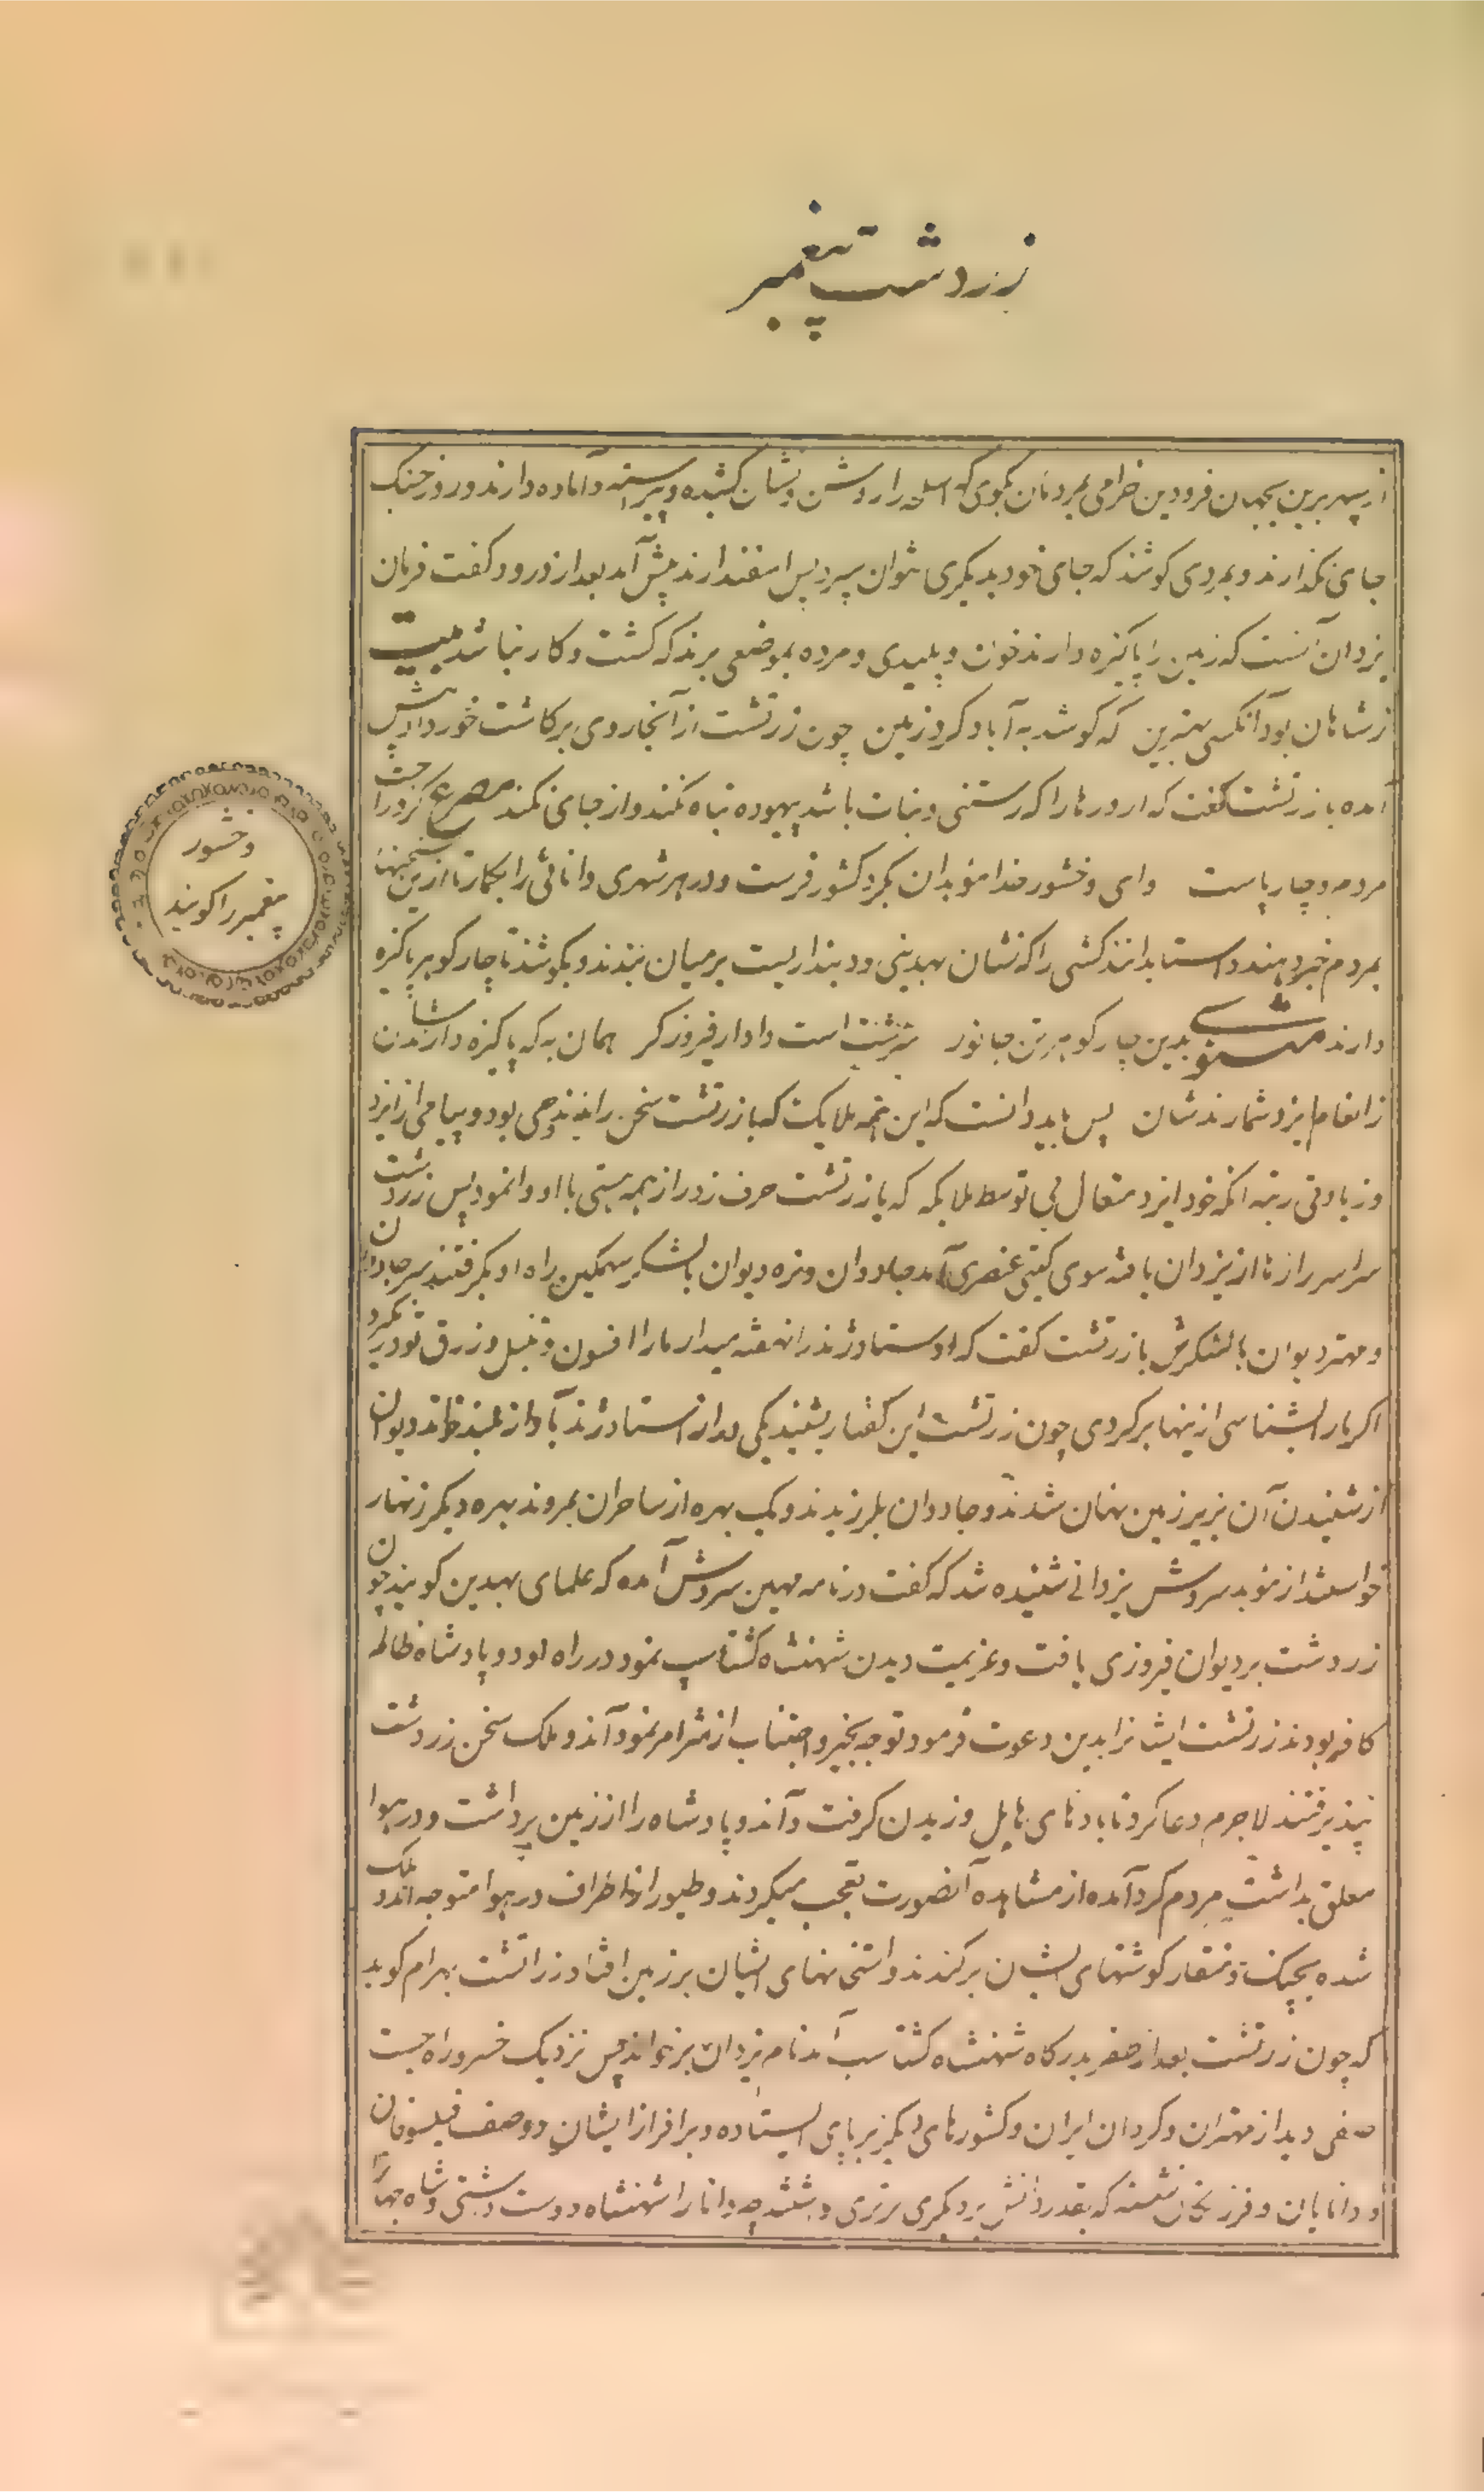 زردشت پیغمبر
از سپهر برین بجهان فرودین خرامی بمردمان بگوی که اسلحه را روشن و نشان کشیده و پیراسته و آماده دارند و روز جنک
جای نگذارند و بمردی کوشند که جای خود بدیگری نتوان سپرد پس اسفندارمذ پیش آمد بعد از درود گفت فرمان
یزدان آنست که زمین را پاکیزه دارند خون و پلیدی و مرده بموضعی برند که کشت و کار نباشد بیت
ز شاهان بود آنکسی بهترین که کوشد به آباد کردن زمین چون زرتشت از آنجا روی برکاشت خورداد پیش
آمده با زرتشت گفت که اورورها را که رستنی و نبات باشد بیهوده تباه نکنند و از جای نکنند مصرع کزو راحت
مردم و چارپاست و ای وخشور خدا مؤبدان بگرد کشور فرست و در هر شهری دانائی را بگمار تا ازین سخنها
بمردم خبر دهند و استا بدانند کشتی را که نشان بهدینی و دینداریست بر میان بندند و بکوشند تا چار گوهر پاکیزه
دارند مثنوی بدین چار گوهر تن جانور سرشت است دادار فیروزگر همان به که پاکیزه دارندشان
ز انعام ایزد شمارندشان پس باید دانست که این همه ملایک که با زرتشت سخن راندند وحی بود و پیامی از ایزد
و زیادتی رتبه آنکه خود ایزد متعال بی توسط ملایکه که با زرتشت حرف زد راز همه هستی با او وانمود پس زردشت
سراسر رازها از یزدان یافته سوی گیتی عنصری آمد جادوان و نره دیوان با لشکر سهمگین راه او بگرفتند سر جادوان
و مهتر دیوان با لشکرش با زرتشت گفت که اوستا و ژند را نهفته میدار ما را افسون و تنبل و زرق تو در نگیرد
اگر ما را بشناسی ازینها برگردی چون زرتشت این گفتار بشنید یکی در از استا و ژند بآواز بلند خواند دیوان
از شنیدن آن بزیر زمین نهان شدند و جادوان بلرزیدند و یک بهره از ساحران بمردند بهره دیگر زنهار
خواستند از مؤبد سروش یزدانی شنیده شد که گفت در نامه مهین سروش آمده که علمای بهدین گویند چون
زردشت بر دیوان فیروزی یافت و عزیمت دیدن شهنشاه گشتاسپ نمود در راه او دو پادشاه ظالم
کافر بودند زرتشت ایشانرا بدین دعوت فرمود توجه بخیر و اجتناب از شر امر نمود آندو ملک سخن زردشت
نپذیرفتند لاجرم دعا کرد تا بادهای هایل وزیدن گرفت و آندو پادشاه را از زمین برداشت و در هوا
معلق بداشت مردم گرد آمده از مشاهده آنصورت تعجب میکردند و طیور از اطراف در هوا متوجه آندو ملک
شده بچنک و منقار گوشتهای ایشان برکندند و استخوانهای ایشان بر زمین افتاد زراتشت بهرام گوید
که چون زرتشت بعد از ظفر بدرگاه شهنشاه گشتاسب آمد نام یزدان برخواند پس نزدیک خسرو راه جست
صفی دید از مهتران و گردان ایران و کشورهای دیگر برپای ایستاده و بر افراز ایشان دو صف فیلسوفان
و دانایان و فرزنگان نشسته که بقدر دانش بر دیگری برتری داشتند چه دانا را شهنشاه دوست داشتی و شاه جهان را
وخشور
پیغمبر را گویند